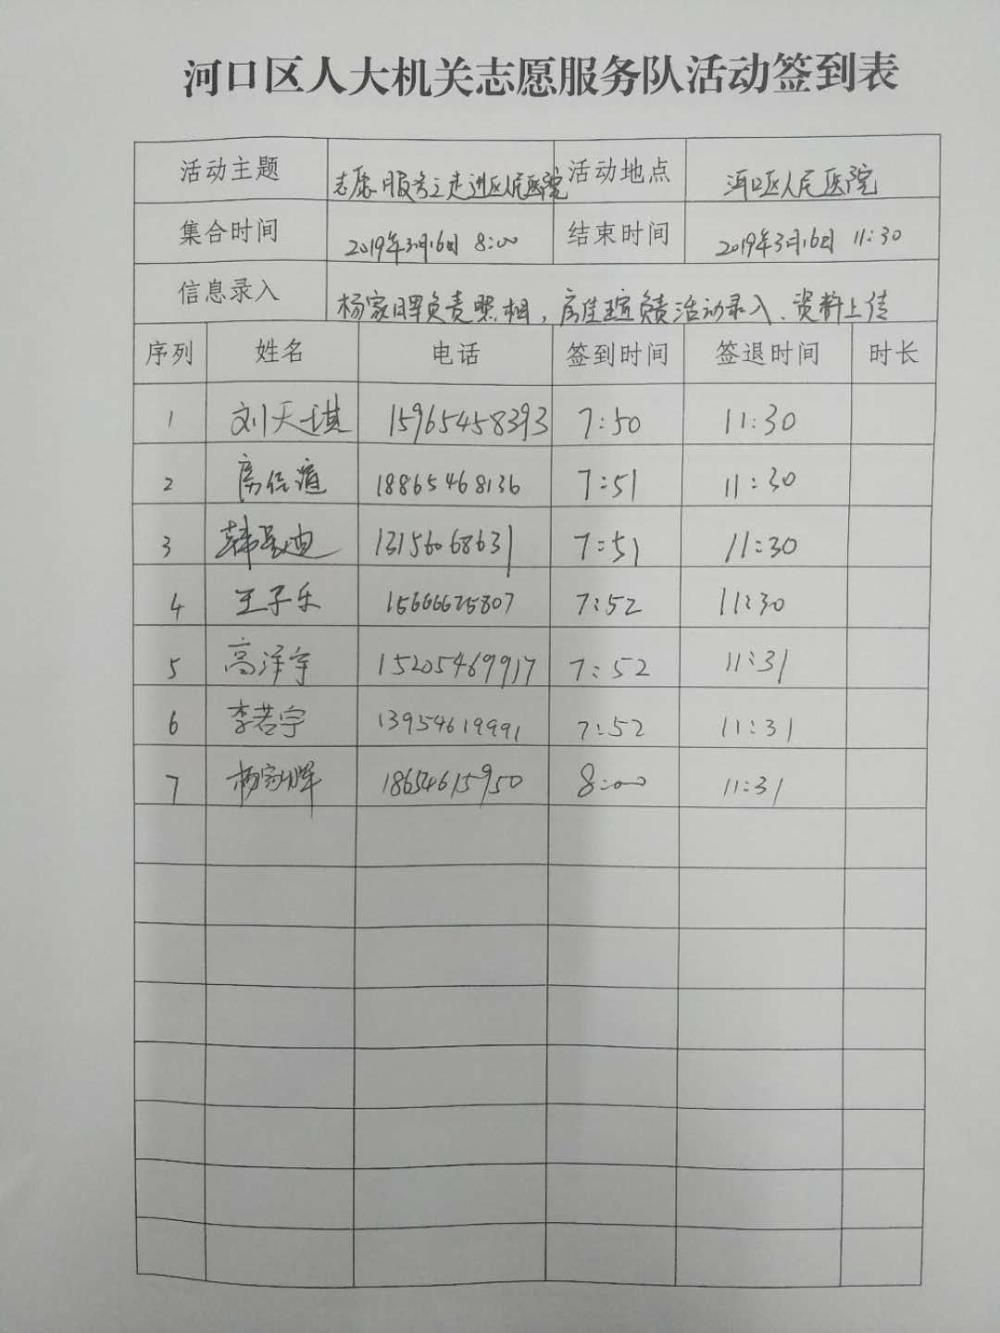 河口区人大机关志愿服务队活动签到表
活动主题 志愿服务之走进区人民医院 活动地点 河口区人民医院
集合时间 2019年3月16日 8:00 结束时间 2019年3月16日 11:30
信息录入 杨家晖负责照相,房佳瑄负责活动录入、资料上传
序列 姓名 电话 签到时间 签退时间 时长
1 刘天琪 15965458393 7:50 11:30
2 18865468136 7:51 11:30
3 13156068631 7:51 11:30
4 王子乐 15666625807 7:52 11:30
5 高泽宇 15205469917 7:52 11:31
6 李若宁 13954619991 7:52 11:31
7 杨家晖 18654615950 8:00 11:31